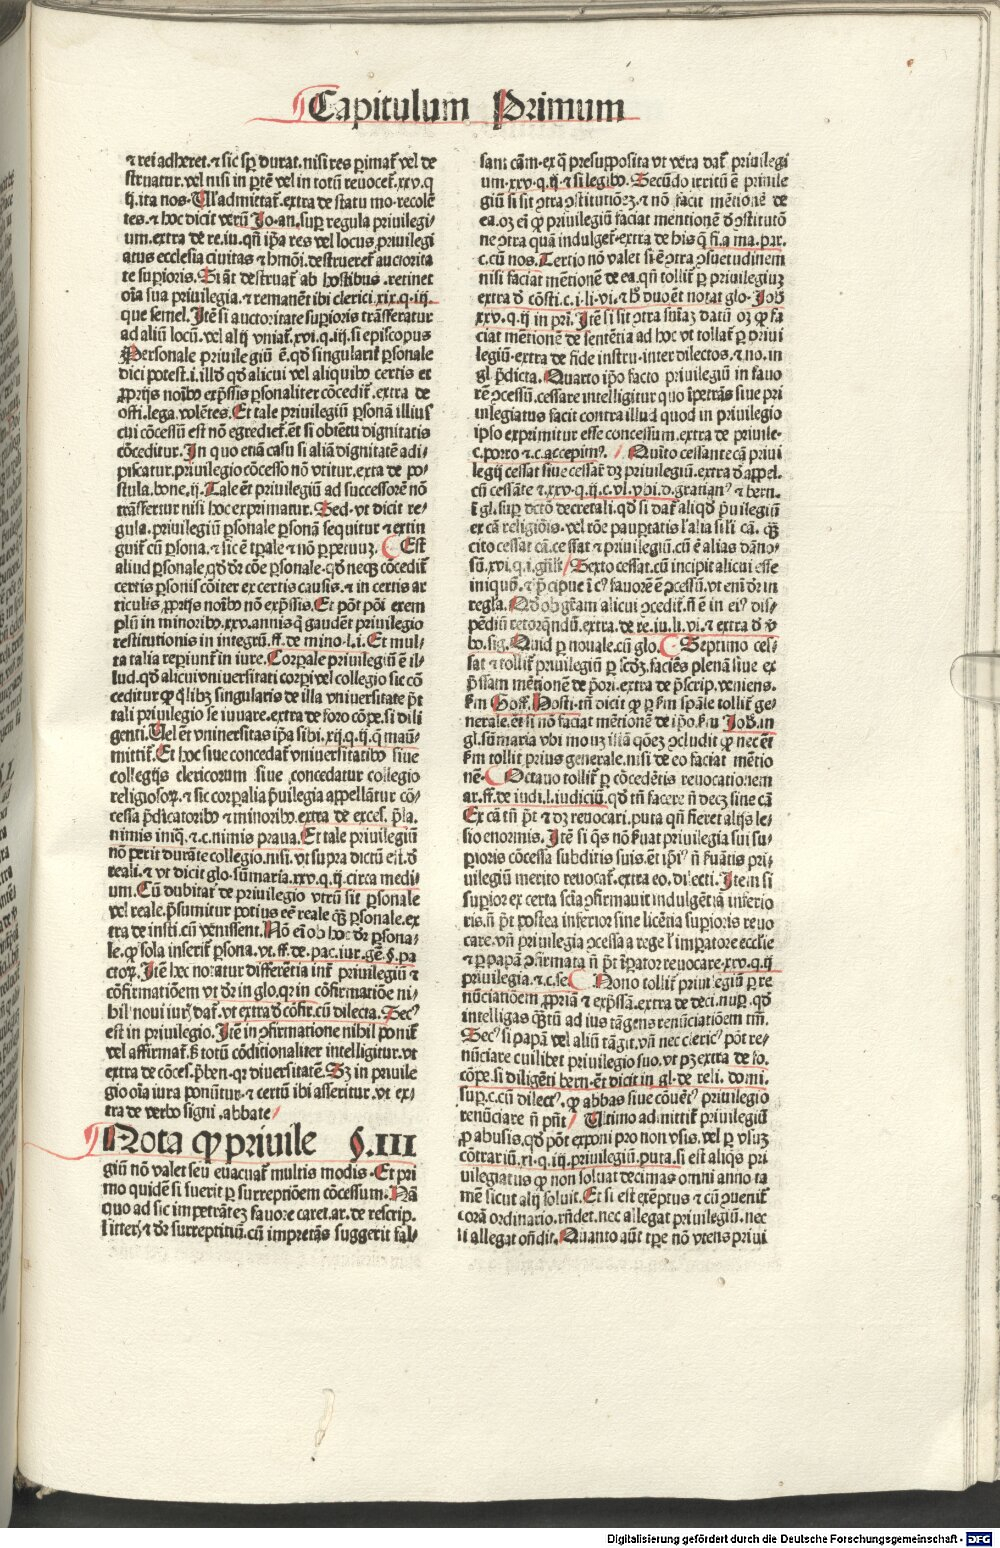 Capitulum Primum
⁊ rei adheret.⁊ sic sp̱ durat.nisi res p̱imat᷑ vel de
struatur.vel nisi in ꝑtē vel in totū reuocet᷑.xxv.q
ij.ita nos.Ul᷑ admittat᷑.extra de statu mo.recolē
tes.⁊ hoc dicit verū Jo.an.suꝑ regula priuilegi⸗
um.extra de re.iu.qn̄ ip̄a res vel locus priuilegi
atus ecclesia ciuitas ⁊ hmōi.destrueret᷑ auctorita
te suꝑioris.Si āt destruat᷑ ab hostibus.retinet
oīa sua priuilegia.⁊ remanēt ibi clerici.xix.q.iij.
que semel.Itē si auctoritate suꝑioris trāsferatur
ad aliū locū.vel alij vniat᷑.xvi.q.iij.si episcopus
Personale priuilegiū ē.qd̄ singularit᷑ ꝑsonale
dici potest.i.illd̄ qd̄ alicui vel aliquibꝰ certis et
ꝓprijs noībꝰ exp̄ssis ꝑsonaliter cōcedit᷑.extra de
offi.lega.volētes.Et tale priuilegiū ꝑsonā illius
cui cōcessū est nō egredit᷑.ēt si obtētu dignitatis
cōceditur.In quo etiā casu si aliā dignitatē adi⸗
piscatur.priuilegio cōcesso nō vtitur.exta de po⸗
stula.bone.ij.Tale ēt priuilegiū ad successorē nō
trāsfertur nisi hoc exprimatur.Sed.vt dicit re⸗
gula.priuilegiū ꝑsonale ꝑsonā sequitur ⁊ extin
guit᷑ cū ꝑsona.⁊ sic ē tꝑale ⁊ nō ꝑpetuuꝫ. Est
aliud ꝑsonale.qd̄ dr̄ cōe ꝑsonale.qd̄ neqꝫ cōcedit᷑
certis ꝑsonis cōiter ex certis causis.⁊ in certis ar
ticulis ꝓprijs noībꝰ nō exp̄ssis.Et pōt pōi exem
plū in minoribꝰ.xxv.annis q̄ gaudēt priuilegio
restitutionis in integrū.ff.de mino.l.i.Et mul⸗
ta talia reꝑiunt᷑ in iure.Corꝑale priuilegiū ē il⸗
lud.qd̄ alicui vniuersitati corꝑi vel collegio sic cō
ceditur ꝙ qͥlibꝫ singularis de illa vniuersitate p̄t
tali priuilegio se iuuare.extra de foro cōpe.si dili
genti.Uel ēt vniuersitas ip̄a sibi.xij.q.ij.q̄ manū⸗
mittit᷑.Et hoc siue concedat᷑ vniuersitatibꝰ siue
collegijs clericorum siue concedatur collegio
religiosoꝝ.⁊ sic corꝑalia p̄uilegia appellātur cō⸗
cessa p̄dicatoribꝰ ⁊ minoribꝰ.extra de exces. p̄la.
nimis iniq̄.⁊.c.nimis praua.Et tale priuilegiū
nō perit durāte collegio.nisi.vt supra dictū est.d̄
reali.⁊ vt dicit glo.sūmaria.xxv.q.ij.circa medi⸗
um.Cū dubitat᷑ de priuilegio vtrū sit ꝑsonale
vel reale.p̄sumitur potius eē reale qͣꝫ ꝑsonale.ex
tra de insti.cū venissent.Nō eī ob hoc dr̄ ꝑsona⸗
le.ꝙ sola inserit᷑ ꝑsona.vt.ff.de.pac.iur.gē.§.pa
ctoꝝ.Itē hoc notatur differētia int᷑ priuilegiū ⁊
cōfirmatiōem vt dr̄ in glo.qr in cōfirmatiōe ni⸗
hil noui iurꝭ dat᷑.vt extra d̄ cōfir.cū dilecta.Secꝰ
est in priuilegio.Itē in ꝯfirmatione nihil ponit᷑
vel affirmat᷑.s̄ totū cōditionaliter intelligitur.vt
extra de cōces.p̄ben.qr diuersitatē.Sꝫ in priuile
gio oīa iura ponūtur.⁊ certū ibi asseritur.vt ex⸗
tra de verbo signi.abbate
Nota ꝙ priuile §.III
giū nō valet seu euacuat᷑ multis modis.Et pri
mo quidē si fuerit ꝑ surreptiōem cōcessum.Nā
quo ad sic impetrātez fauore caret.ar.de rescrip.
litterꝭ.⁊ dr̄ surreptitiū.cū impetrās suggerit fal⸗
sam cām.ex q̄ presupposita vt vera dat᷑ priuilegi
um.xxv.q.ij.⁊ si legibꝰ.Secūdo irritū ē priuile
giū si sit ꝯtra ꝯstitutiōeꝫ.⁊ nō facit mētionē de
ea.oꝫ eī ꝙ priuilegiū faciat mentionē d̄ ꝯstitutō
ne ꝯtra quā indulget᷑.extra de his q̄ fi.a ma.par.
c.cū nos.Tertio nō valet si ē ꝯtra ꝯsuetudinem
nisi faciat mētionē de ea.qn̄ tollit᷑ ꝑ priuilegiuꝫ
extra d̄ cōsti.c.i.li.vi.⁊ h̄ duo ēt notat glo.Joh̄.
xxv.q.ij in pri.Itē si sit ꝯtra sniāꝫ datū oꝫ ꝙ fa
ciat mētionē de sentētia ad hoc vt tollat᷑ ꝑ priui
legiū.extra de fide instru.inter dilectos.⁊ no.in
gl.p̄dicta.Quarto ip̄o facto priuilegiū in fauo
rē ꝯcessū.cessare intelligitur quo īpetrās siue pri
uilegiatus facit contra illud quod in priuilegio
ipso exprimitur esse concessum.extra de priuile⸗
c.porro ⁊.c.accepimꝰ. Quīto cessante cā priui
legij cessat siue cessat᷑ dꝫ priuilegiū.extra d̄ appel.
cū cessāte ⁊.xxv.q.ij.c.vl.vbi.d.gratianꝰ ⁊ bern.
ī gl.suꝑ dc̄to decretali.qd̄ si dat᷑ aliqd̄ p̄uilegiū
ex cā religiōis.vel rōe pauꝑtatis l᷑alia sili cā. qͣꝫ
cito cessat cā.cessat ⁊ priuilegiū.cū ē alias dāno⸗
sū.xvi.q.i.gn̄li. Sexto cessat.cū incipit alicui esse
iniquū.⁊ p̄cipue ī cꝰ fauorē ē ꝯcessū.vt enī dr̄ in
regl̄a.Qd̄ ob gr̄am alicui ꝯcedit᷑.n̄ ē in eiꝰ dis⸗
pēdiū retorqndū.extra.de re.iu.li.vi.⁊ extra d̄ v̄
bo.sig.Quid ꝑ nouale.cū glo. Septimo ces⸗
sat ⁊ tollit᷑ priuilegiū ꝑ scd̄ꝫ.faciēs plenā siue ex
p̄ssam mētionē de p̄ori.extra de p̄scrip.veniens.
ẜm Goff.Hosti.tn̄ dicit ꝙ ꝑ ẜm sp̄ale tollit᷑ ge⸗
nerale.et si nō faciat mētionē de ip̄o.ẜm Joh̄.in
gl.sūmaria vbi mouꝫ illā qōeꝫ ꝯcludit ꝙ nec ēt
ẜm tollit prius generale.nisi de eo faciat mētio
nē. Octauo tollit᷑ ꝑ cōcedētis reuocationem
ar.ff.de iudi.l.iudiciū.qd̄ tn̄ facere n̄ decꝫ sine cā
Ex cā tn̄ p̄t ⁊ dꝫ reuocari.puta qn̄ fieret alijs le⸗
sio enormis. Itē si q̄s nō ẜuat priuilegia sui su⸗
ꝑioris cōcessa subditis suis.ēt ip̄iꝰ n̄ ẜuātis pri⸗
uilegiū merito reuocat᷑.extra eo.dilecti.Item si
suꝑior ex certa sciā ꝯfirmauit indulgētiā inferio
ris.n̄ p̄t postea inferior sine licētia suꝑioris reuo
care.vn̄ priuilegia ꝯcessa a rege l᷑ imꝑatore ecclīe
⁊ ꝑ papā ꝯfirmata n̄ p̄t īꝑator reuocare.xxv.q.ij
priuilegia.⁊.c.se Nono tollit᷑ priuilegiū ꝑ re
nūciatiōem ꝓpriā ⁊ exp̄ssā.extra de deci.nuꝑ.qd̄
intelligas qͣꝫtū ad ius tāgens renūciatiōem tm̄.
Secꝰ si papā vel aliū tāgit.vn̄ nec clericꝰ pōt re⸗
nūciare cuilibet priuilegio suo.vt pꝫ extra de fo.
cōpe.si diligēti bern.ēt dicit in gl.de reli. domi.
suꝑ.c.cū dilectꝰ.ꝙ abbas siue cōuētꝰ priuilegio
renūciare n̄ pn̄t Ultimo admittit᷑ priuilegiū
ꝑ abusis.qd̄ pōt exponi pro non vsis.vel ꝑ vsuꝫ
cōtrariū.xi.q.iij.priuilegiū.puta.si est aliqͥs pri
uilegiatus ꝙ non soluat decimas omni anno ta
mē sicut alij soluit.Et si est exēptus ⁊ cū ꝯuenit᷑
corā ordinario.rn̄det.nec allegat priuilegiū.nec
si allegat on̄dit.Quanto aūt tꝑe nō vtens priui
Digitalisierung gefördert durch die Deutsche Forschungsgemeinschaft - DFG